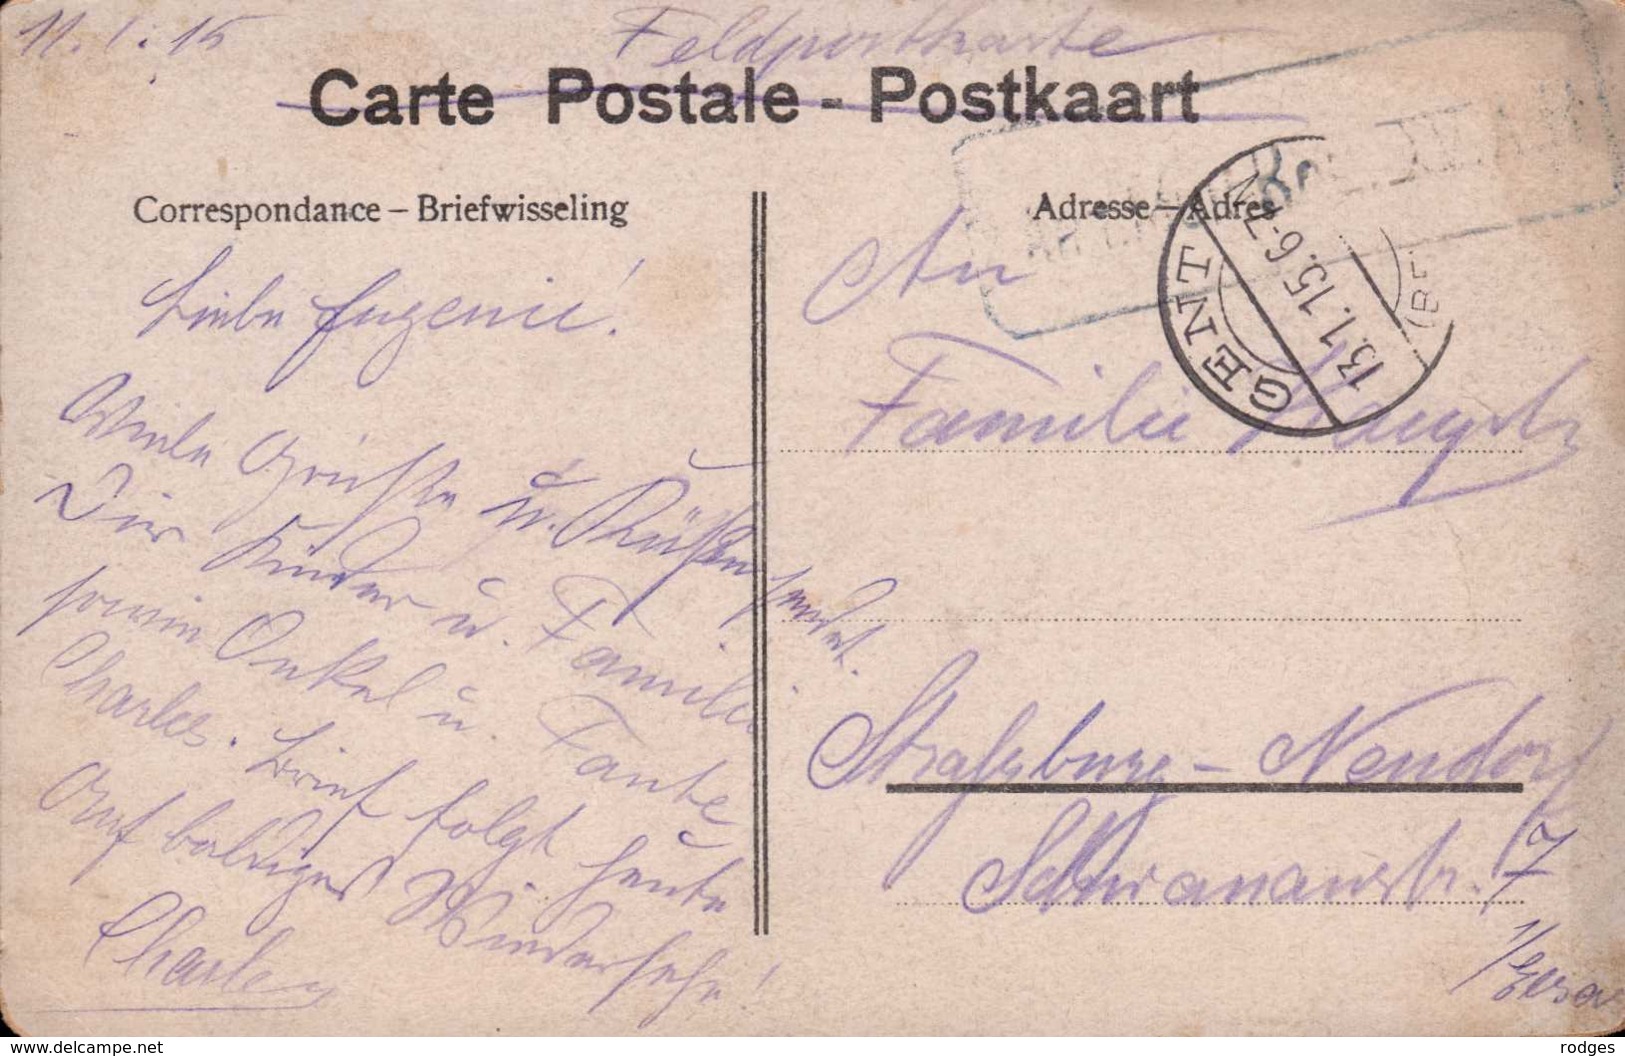 11.1.15
Feldpostkarte
Carte Postale - Postkaart
Correspondance – Briefwisseling
Adresse – Adres
GENT
13.1.15. 6-7 N
Liebe Eugenie!
Viele Grüße u. Küsse sendet
Dir Kinder u. Familie
sowie Onkel u Tante
Charles. Brief folgt heute
Auf baldiges Wiedersehn!
Charles
An
Familie
Straßburg – Neudorf
7
1/Elsa
www.delcampe.net
rodges